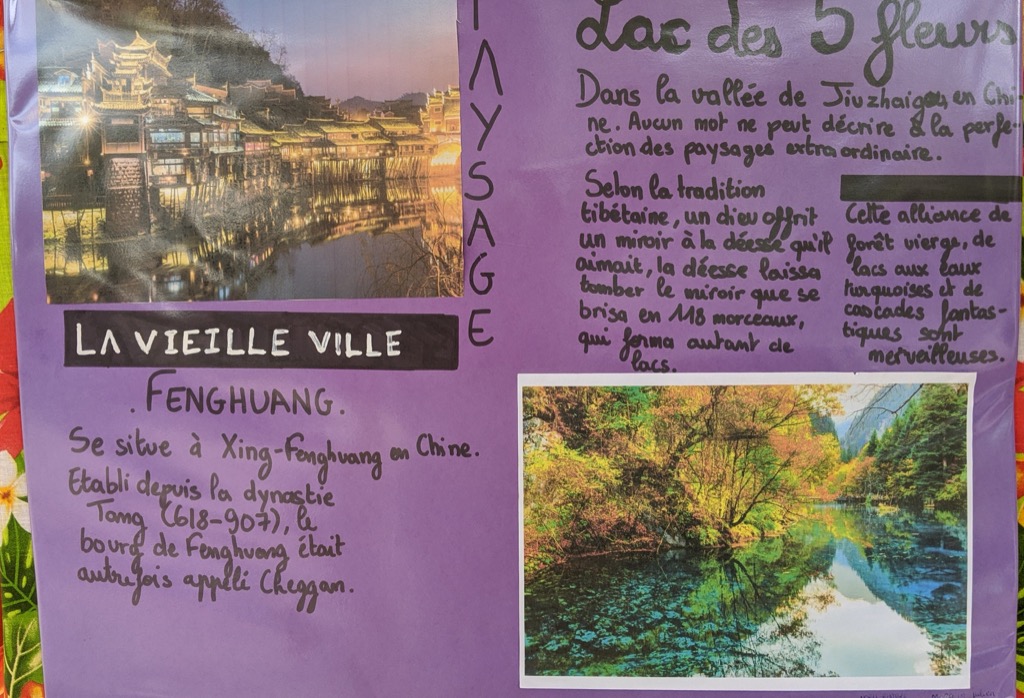 PAYSAGE
LA VIEILLE VILLE
. FENGHUANG.
Se situe à Xing-Fenghuang en Chine.
Etabli depuis la dynastie
Tang (618-907), le
bourg de Fenghuang était
autrefois appelé Cheggan.
Lac des 5 fleurs
Dans la vallée de Jiuzhaigou en Chi-
ne. Aucun mot ne peut décrire à la perfe-
ction des paysages extraordinaire.
Selon la tradition
tibétaine, un dieu offrit
un miroir à la déesse qu'il
aimait, la déesse laissa
tomber le miroir que se
brisa en 118 morceaux,
qui forma autant de
lacs.
Cette alliance de
forêt vierge, de
lacs aux eaux
turquoises et de
cascades fantas-
tiques sont
merveilleuses.